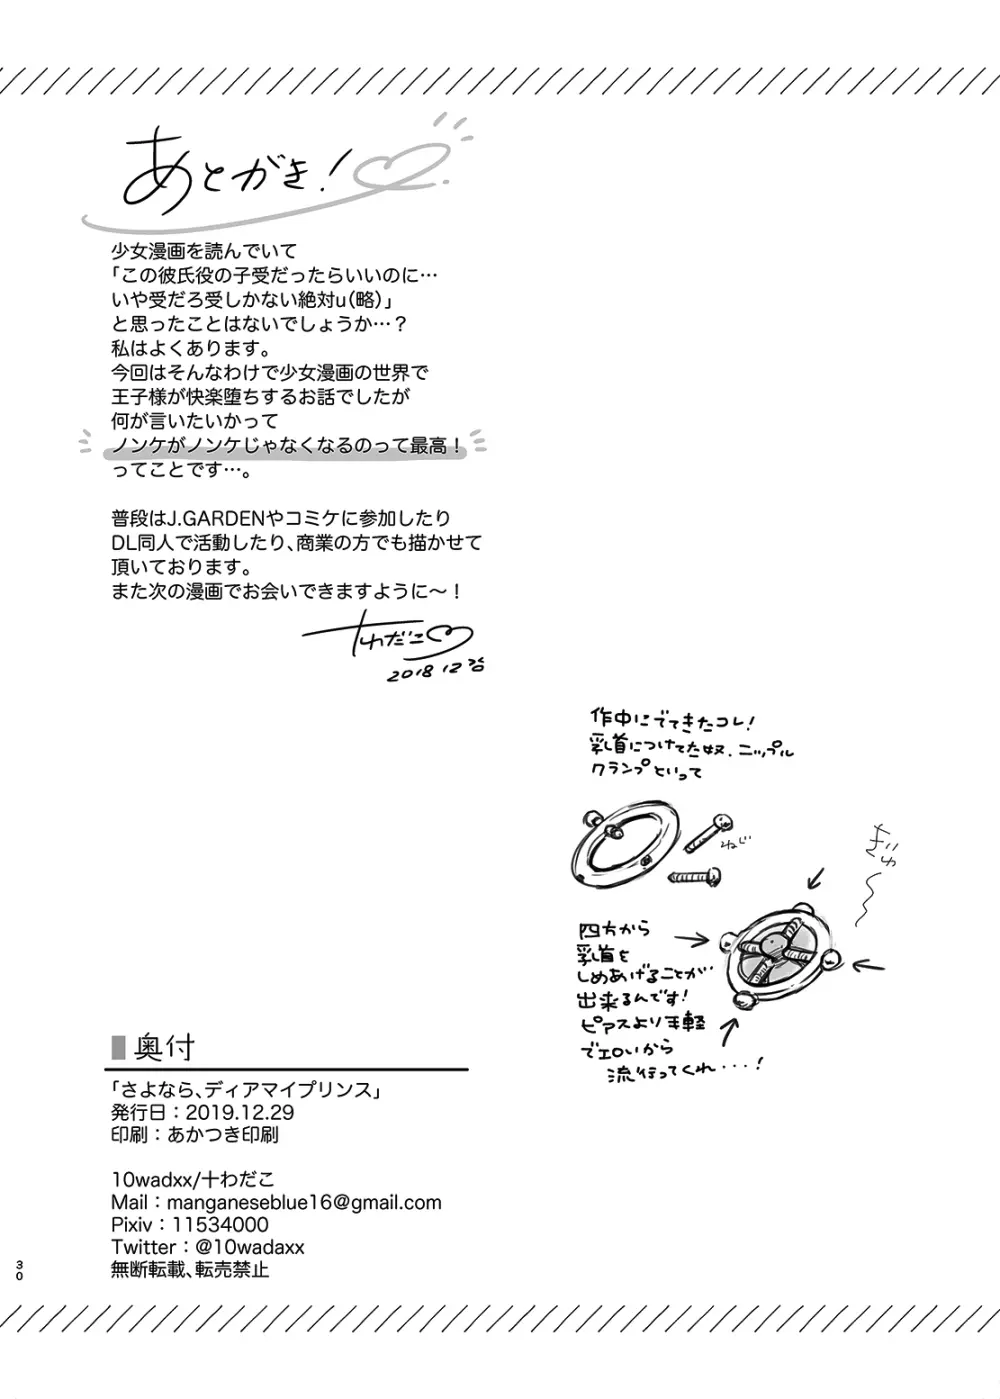 あとがき!
少女漫画を読んでいて
「この彼氏役の子受だったらいいのに…
いや受だろ受しかない絶対u(略)」
と思ったことはないでしょうか…?
私はよくあります。
今回はそんなわけで少女漫画の世界で
王子様が快楽堕ちするお話でしたが
何が言いたいかって
ノンケがノンケじゃなくなるのって最高!
ってことです…。
普段はJ.GARDENやコミケに参加したり
DL同人で活動したり、商業の方でも描かせて
頂いております。
また次の漫画でお会いできますように〜!
十わだこ
2018 12
作中にでてきたコレ!
乳首につけてた奴、ニップル
クランプといって
ねじ
ぎゅ〜
四方から
乳首を
しめあげることが
出来るんです!
ピアスより手軽
でエロいから
流行ってくれ・・・・!
奥付
「さよなら、ディアマイプリンス」
発行日:2019.12.29
印刷:あかつき印刷
10wadxx/十わだこ
Mail:manganeseblue16@gmail.com
Pixiv:11534000
Twitter:@10wadaxx
無断転載、転売禁止
30